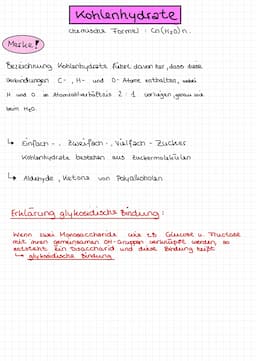 Kohlenhydrate
chemische Formel : Cn(H₂O)n.
Merke!
Bezeichnung Kohlenhydrate führt davon her, dass diese
Verbindungen C-, H- und O-Atome enthalten, wobei
H und O im Atomzahlverhältnis 2 : 1 vorliegen, genau wie
beim H₂O.
↳ Einfach-, Zweifach-, Vielfach-Zucker
Kohlenhydrate bestehen aus Zuckermolekülen
↳ Aldehyde, Ketone von Polyalkoholen
Erklärung glykosidische Bindung:
Wenn zwei Monosaccharide wie z.B Glucose u. Fructose
mit ihren gemeinsamen OH-Gruppen verknüpft werden, so
entsteht ein Disaccharid und diese Bindung heißt
↳ glykosidische Bindung